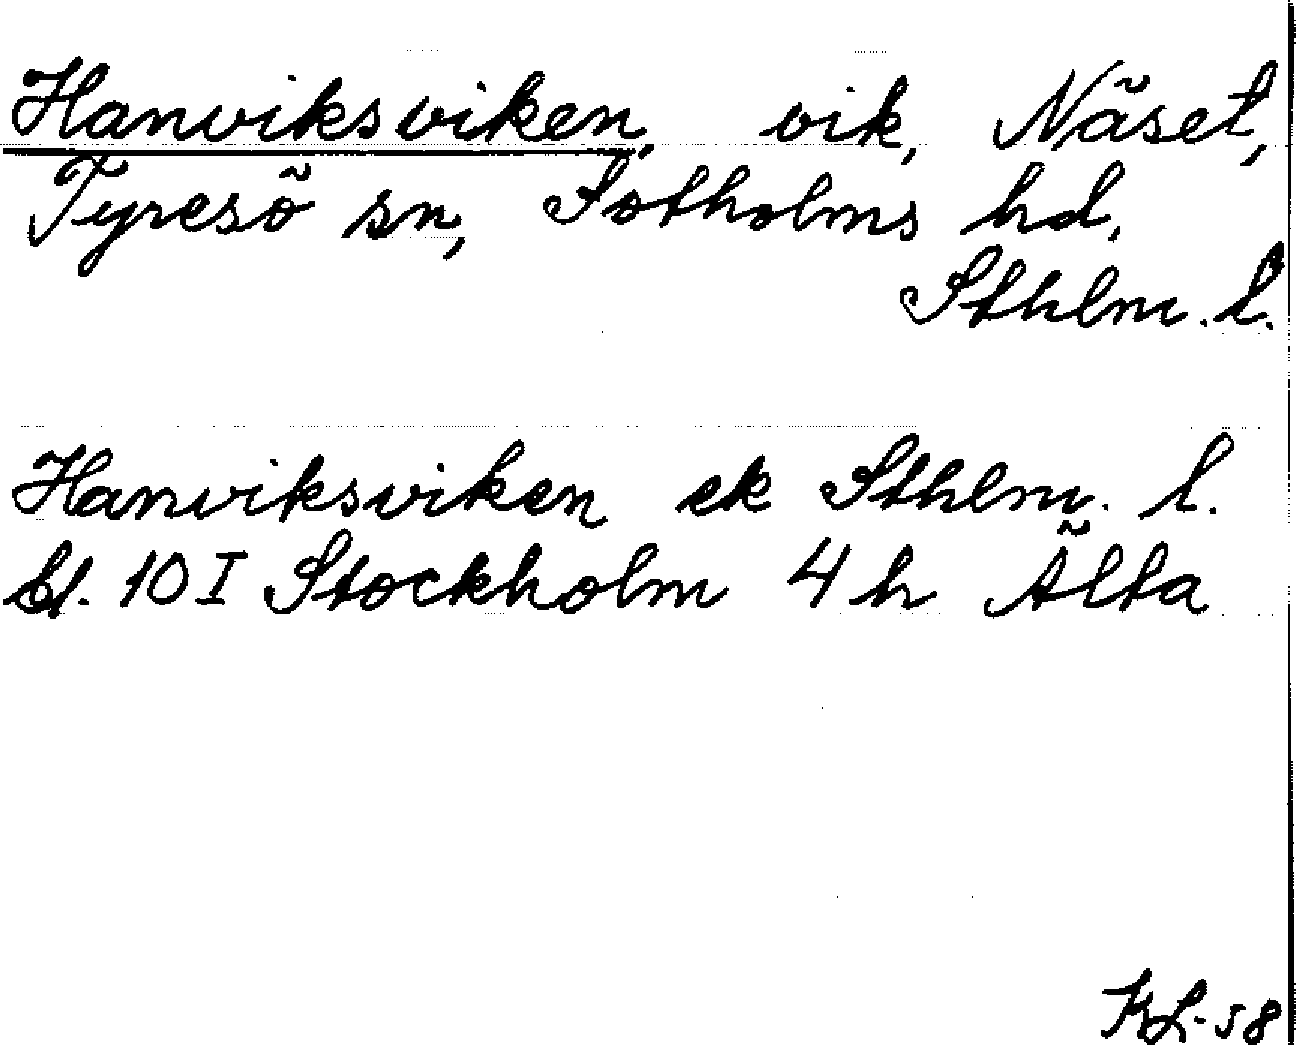 Hanviksviken, vik, Näset,
Tyresö sn, Sotholms hd,
Sthlm. l.
Hanviksviken ek Sthlm. l.
Bl. 10 I Stockholm 4 h Älta
KL-58